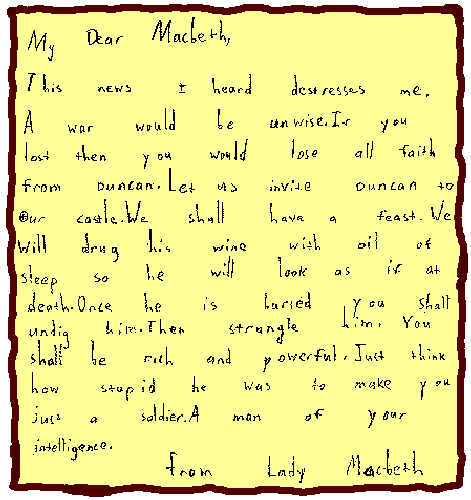 My Dear Macbeth,
This news I heard destresses me.
A war would be unwise.If you
lost then you would lose all faith
from Duncan.Let us invite Duncan to
Our castle.We shall have a feast.We
will drug his wine with oil of
sleep so he will look as if at
death.Once he is buried you shall
undig him.Then strangle him. You
shall be rich and powerful.Just think
how stupid he was to make you
just a soldier.A man of your
intelligence.
From Lady Macbeth